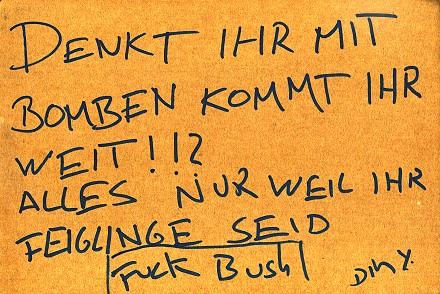 DENKT IHR MIT
BOMBEN KOMMT IHR
WEIT!!?
ALLES NUR WEIL IHR
FEIGLINGE SEID
Fuck Bush